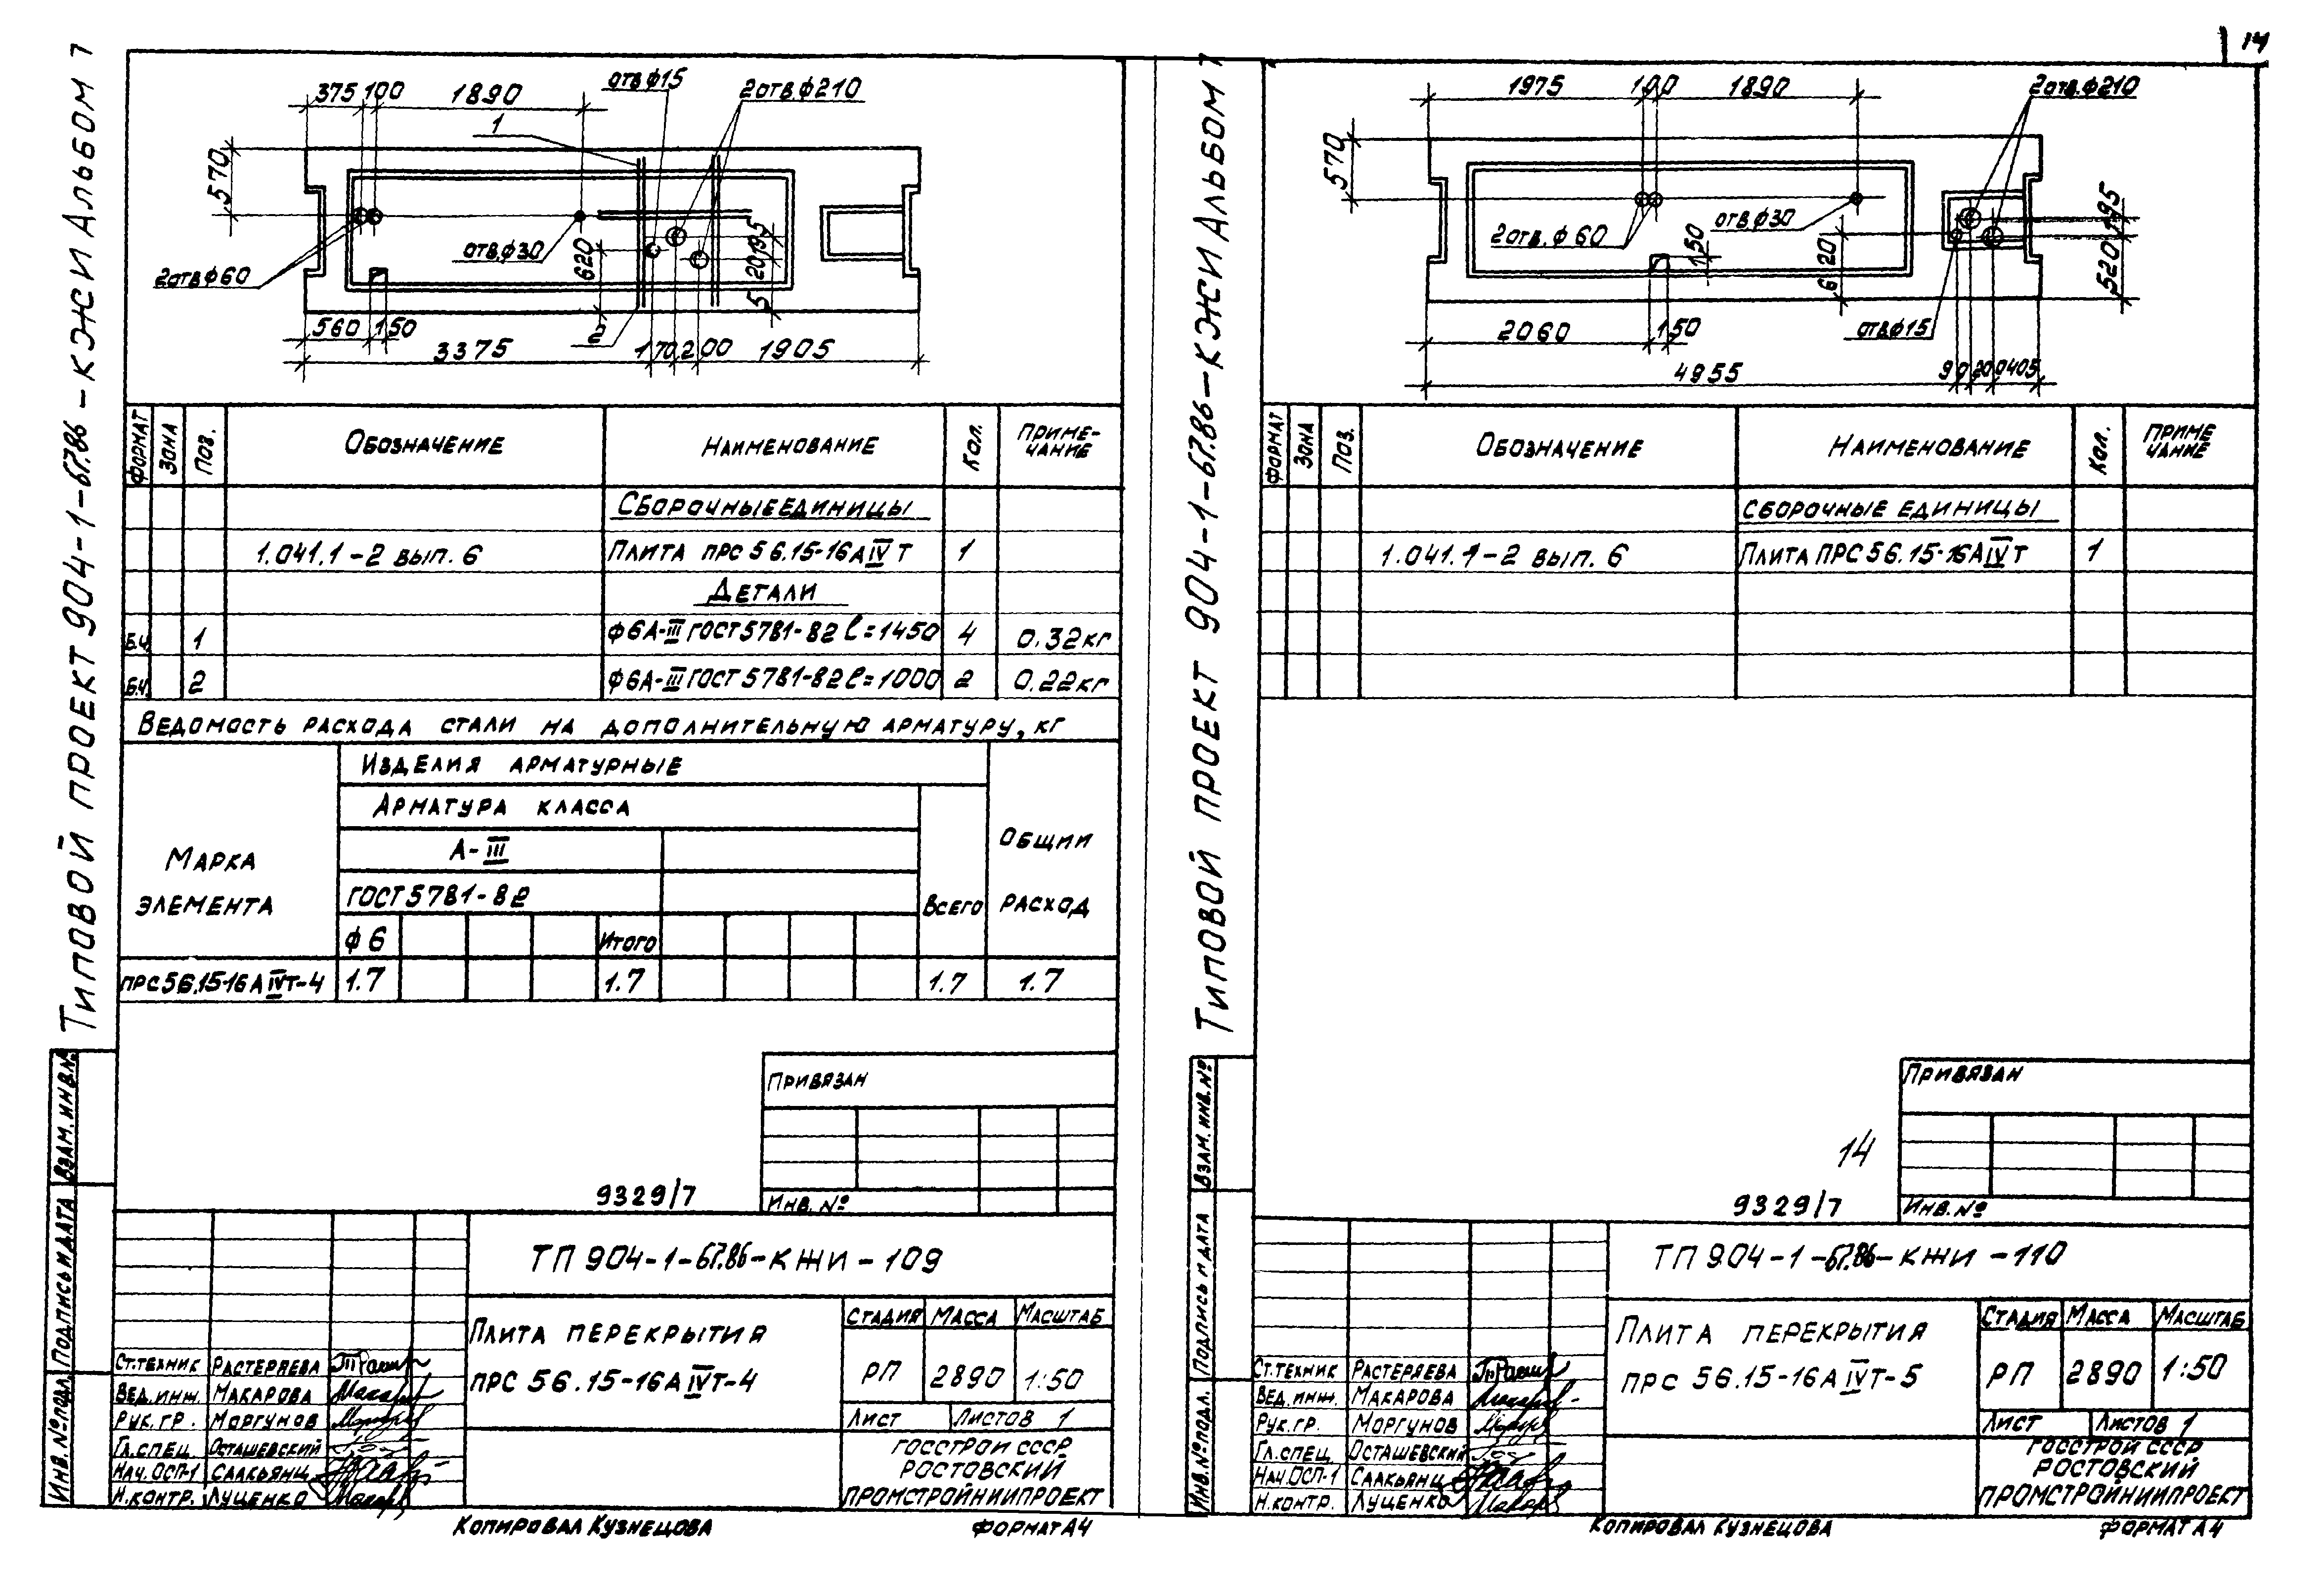 14
Типовой проект 904-1-67.86-КЖИ Альбом 7
375 100 1890
отв.ф15
2отв.ф210
1
570
2отвф60
отв.ф30
620
195
20
5
560 150
2
3375 170 200 1905
Формат Зона Поз. Обозначение Наименование Кол. Приме-
чание
Сборочные единицы
1.041.1-2 вып. 6 Плита ПРС 56.15-16АIVТ 1
Детали
Б.Ч. 1 ф6А-III ГОСТ 5781-82 ℓ=1450 4 0.32кг
Б.Ч. 2 ф6А-III ГОСТ 5781-82 ℓ=1000 2 0.22кг
Ведомость расхода стали на дополнительную арматуру, кг
Марка
элемента
Изделия арматурные
Арматура класса
А-III
ГОСТ 5781-82
ф6 Итого
Всего
Общий
расход
ПРС 56.15-16АIVТ-4 1.7 1.7 1.7 1.7
Привязан
Инв. №
9329/7
ТП 904-1-67.86-КЖИ-109
Плита перекрытия
ПРС 56.15-16АIVТ-4
Стадия Масса Масштаб
РП 2890 1:50
Лист Листов 1
Госстрой СССР
Ростовский
Промстройниипроект
Ст.техник Растеряева
Вед.инж. Макарова
Рук.гр. Моргунов
Гл.спец. Осташевский
Нач.ОСП-1 Саакьянц
Н.контр. Луценко
Инв.№подл. Подпись и дата Взам.инв.№
Копировал Кузнецова Формат А4
Типовой проект 904-1-67.86-КЖИ Альбом 7
1975 100 1890
2отв.ф210
570
2отв.ф60
отв.ф30
150
620
195
520
отв.ф15
2060 150
4955 90 200 405
Формат Зона Поз. Обозначение Наименование Кол. Приме
чание
Сборочные единицы
1.041.1-2 вып. 6 Плита ПРС 56.15-16АIVТ 1
Привязан
Инв. №
14
9329/7
ТП 904-1-67.86-КЖИ-110
Плита перекрытия
ПРС 56.15-16АIVТ-5
Стадия Масса Масштаб
РП 2890 1:50
Лист Листов 1
Госстрой СССР
Ростовский
Промстройниипроект
Ст.техник Растеряева
Вед.инж. Макарова
Рук.гр. Моргунов
Гл.спец. Осташевский
Нач.ОСП-1 Саакьянц
Н.контр. Луценко
Инв.№подл. Подпись и дата Взам.инв.№
Копировал Кузнецова Формат А4